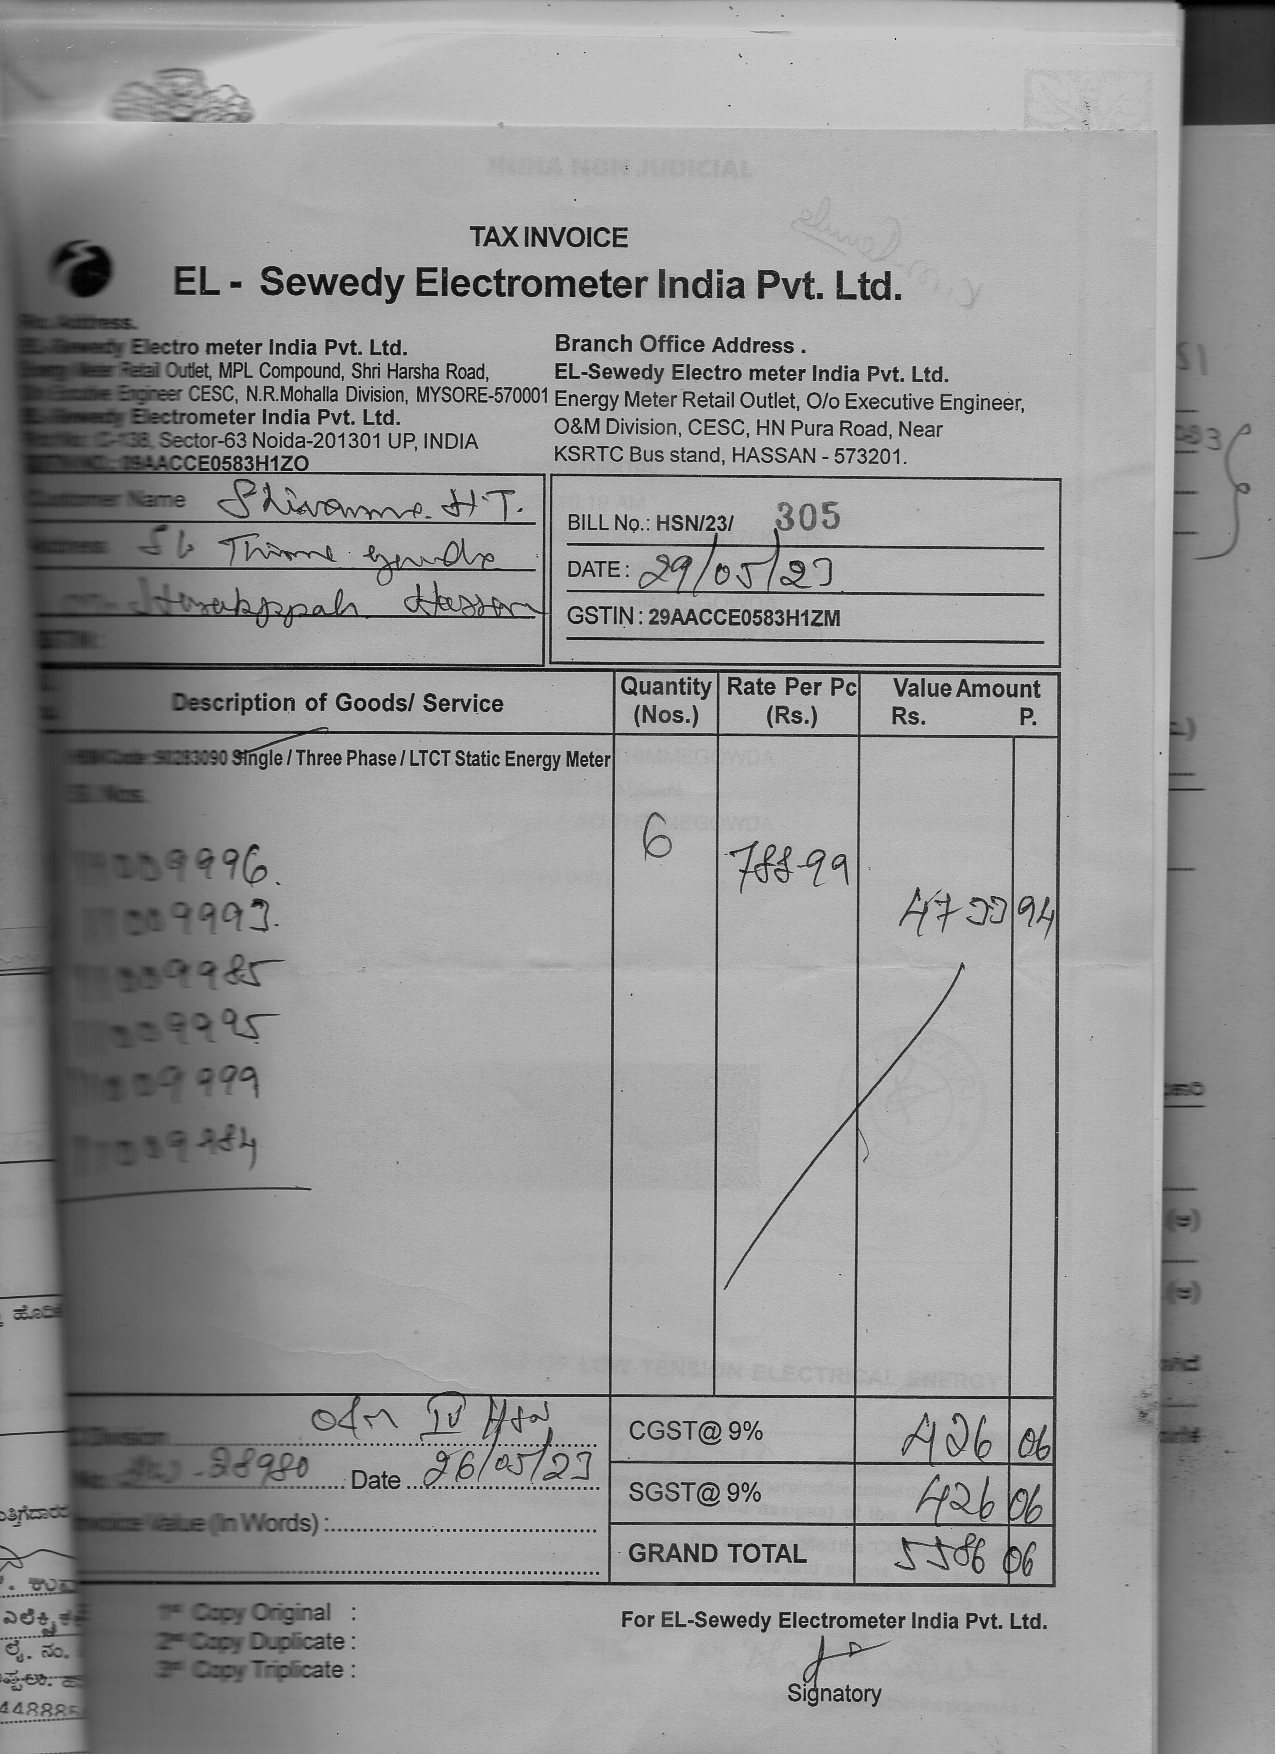 TAX INVOICE
EL - Sewedy Electrometer India Pvt. Ltd.
EL-Sewedy Electro meter India Pvt. Ltd.
Energy Meter Retail Outlet, MPL Compound, Shri Harsha Road,
Engineer CESC, N.R.Mohalla Division, MYSORE-570001
EL-Sewedy Electrometer India Pvt. Ltd.
Sector-63 Noida-201301 UP, INDIA
09AACCE0583H1ZO
Branch Office Address .
EL-Sewedy Electro meter India Pvt. Ltd.
Energy Meter Retail Outlet, O/o Executive Engineer,
O&M Division, CESC, HN Pura Road, Near
KSRTC Bus stand, HASSAN - 573201.
Customer Name Shivamma. H.T.
Address Thimme gowda
Hassan
GSTIN:
BILL No.: HSN/23/ 305
DATE : 29/05/23
GSTIN : 29AACCE0583H1ZM
Description of Goods/ Service
Quantity (Nos.)
Rate Per Pc (Rs.)
Value Amount
Rs. P.
HSN Code: 90283090 Single / Three Phase / LTCT Static Energy Meter
Sl. Nos.
6 788-99
4733 94
11009996.
11009993.
11009985
11009995
11009999
11009984
Division O&M IV HSN
28980 Date 26/05/23
Invoice Value (In Words) :
CGST@ 9% 426 06
SGST@ 9% 426 06
GRAND TOTAL 5586 06
1st Copy Original :
2nd Copy Duplicate :
3rd Copy Triplicate :
For EL-Sewedy Electrometer India Pvt. Ltd.
Signatory